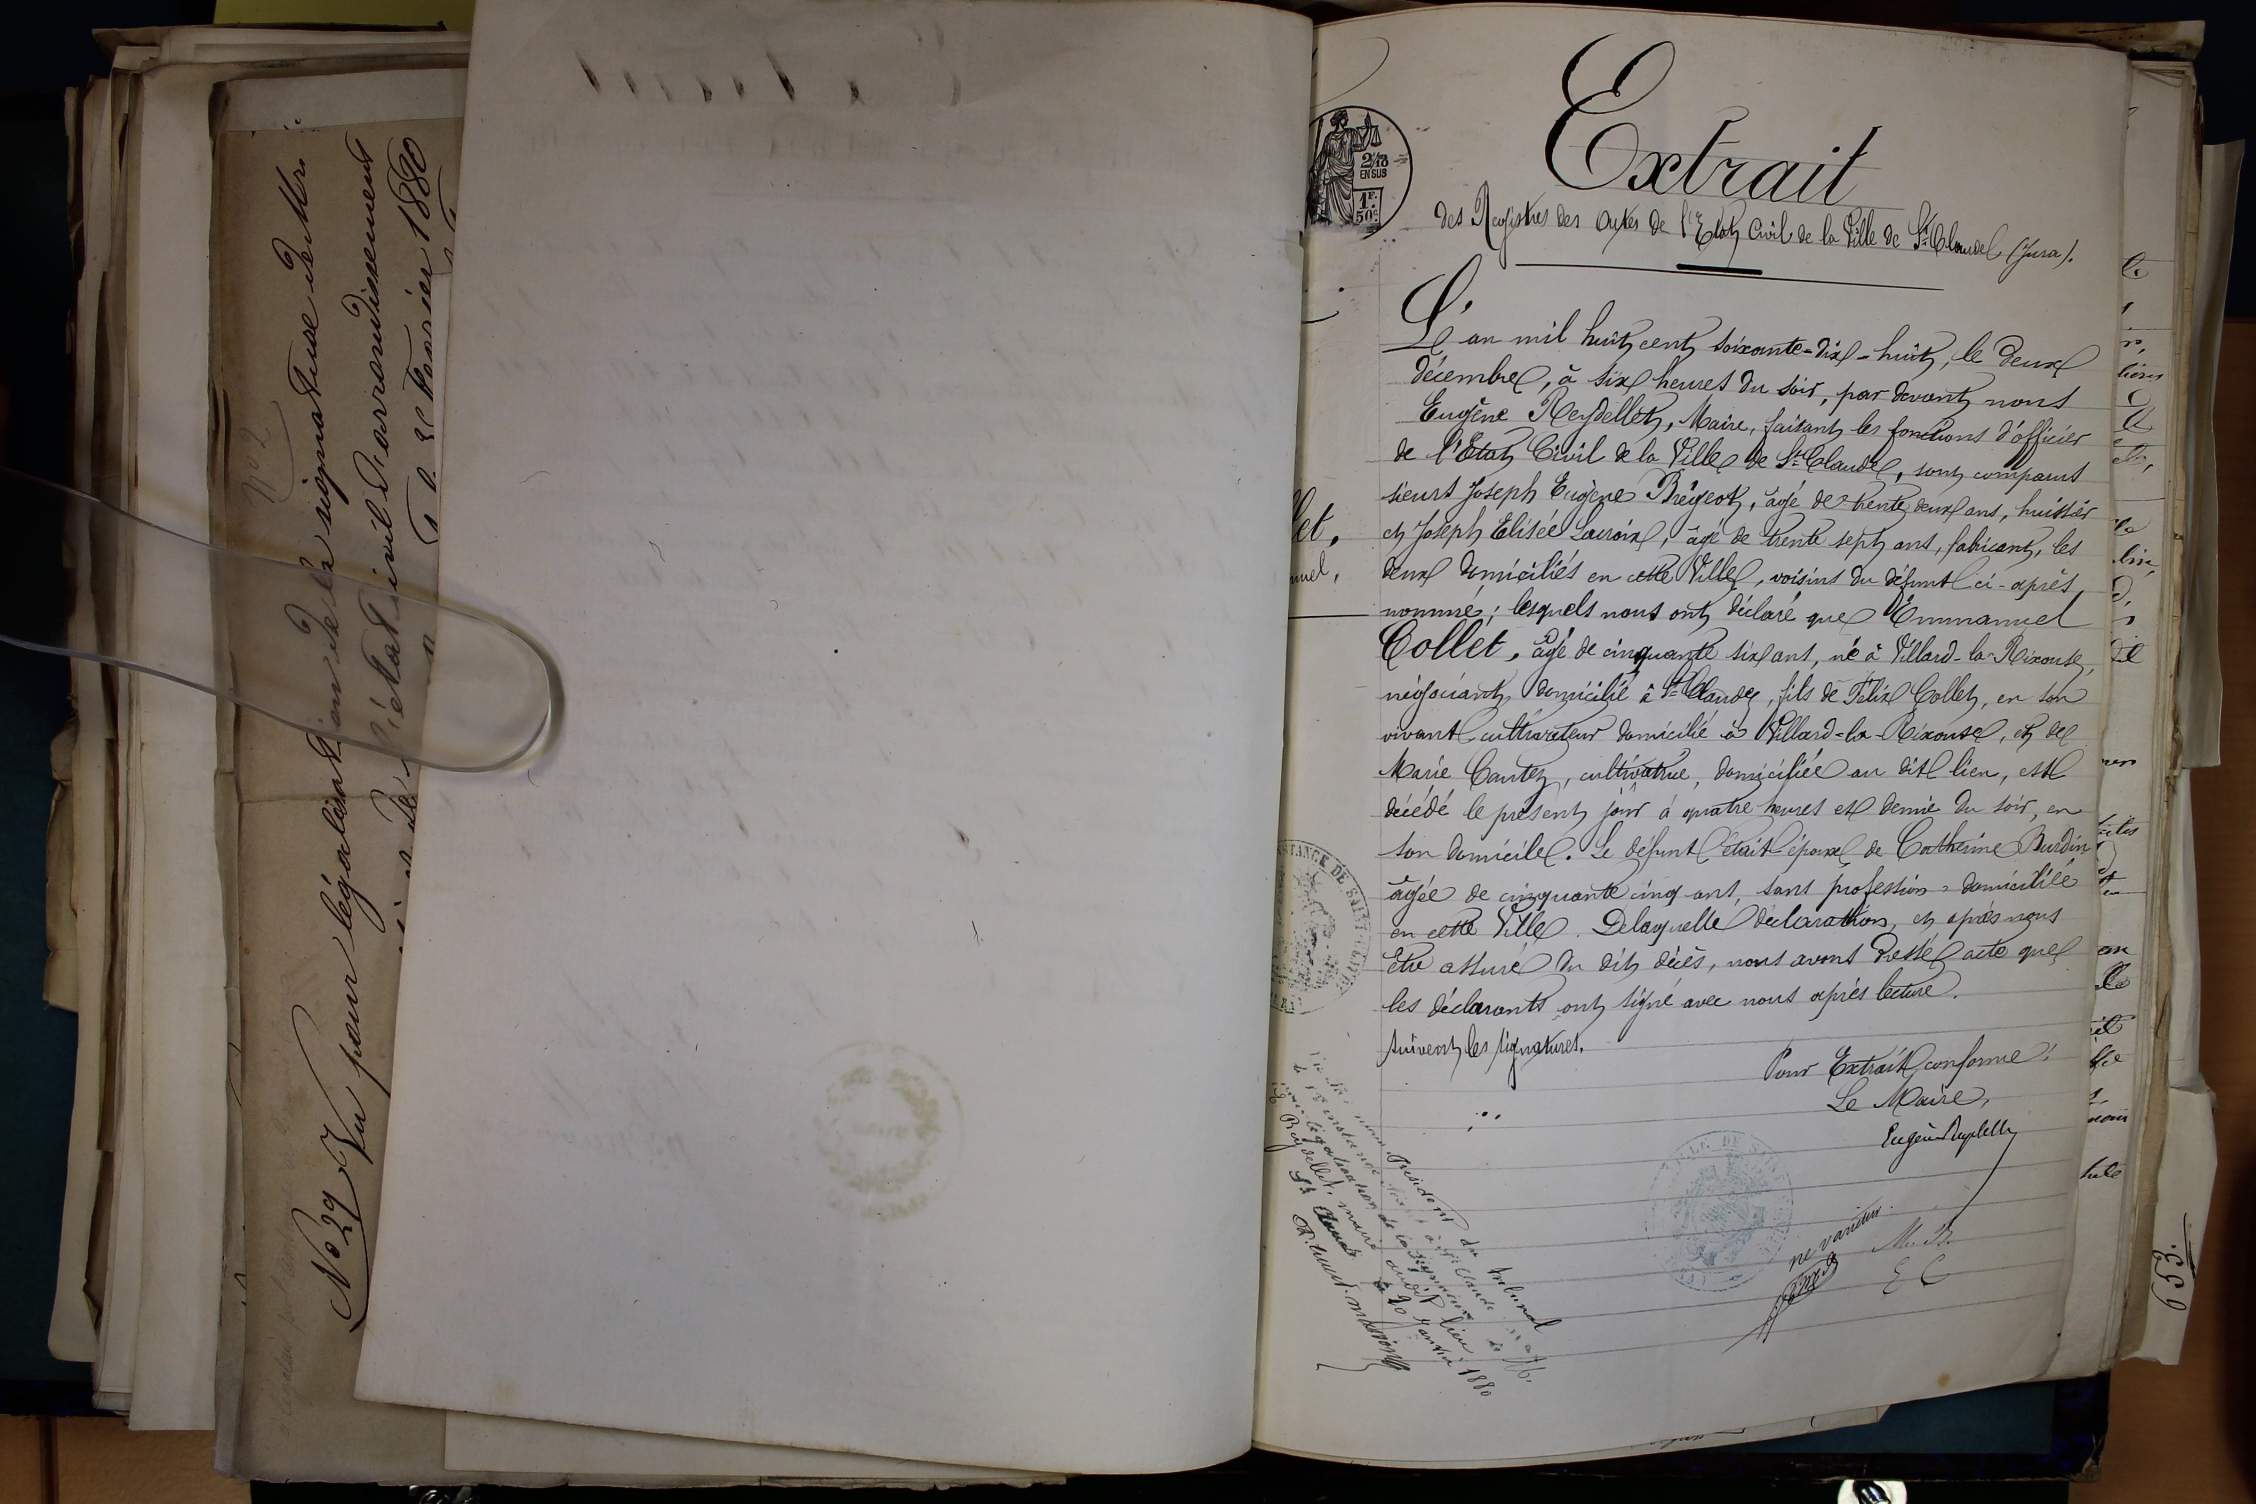 No 2
No 29 Vu pour légalisation de la signature de Mr
de l'état civil d'arrondissement
février 1880
2/10
EN SUS
1F.
50c.
Extrait
des Registres des actes de l'Etat Civil de la Ville de St Claude (Jura).
L'an mil huit cent soixante-dix-huit, le deux
décembre, à six heures du soir, par devant nous
Eugène Reydellet, Maire, faisant les fonctions d'officier
de l'Etat Civil de la Ville de St Claude, sont comparus
sieurs Joseph Eugène Brégeot, âgé de trente deux ans, huissier
et Joseph Elisée Lacroix, âgé de trente sept ans, fabricant, les
deux domiciliés en cette Ville, voisins du défunt ci-après
nommé; lesquels nous ont déclaré que Emmanuel
Collet, âgé de cinquante six ans, né à Villard-la-Rixouse,
négociant, domicilié à St Claude, fils de Félix Collet, en son
vivant cultivateur domicilié à Villard-la-Rixouse, et de
Marie Cantez, cultivatrice, domiciliée au dit lieu, est
décédé le présent jour à quatre heures et demie du soir, en
son domicile. Le défunt était époux de Catherine Burdin
âgée de cinquante cinq ans, sans profession, domiciliée
en cette Ville. De laquelle déclaration, et après nous
être assuré du dit décès, nous avons dressé acte que
les déclarants ont signé avec nous après lecture.
Suivent les signatures.
Pour Extrait conforme:
Le Maire,
Eugène Reydellet
ne varietur
M. B.
E C
Président du tribunal
légalisation de la signature de M.
Reydellet, maire audit lieu
St Claude le 20 Janvier 1880
let,
nuel,
653.